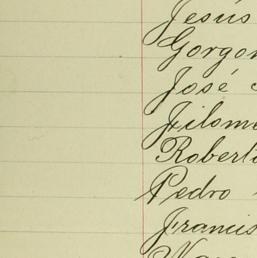 Jesús
Gorgon
José
Filome
Roberto
Pedro
Francis